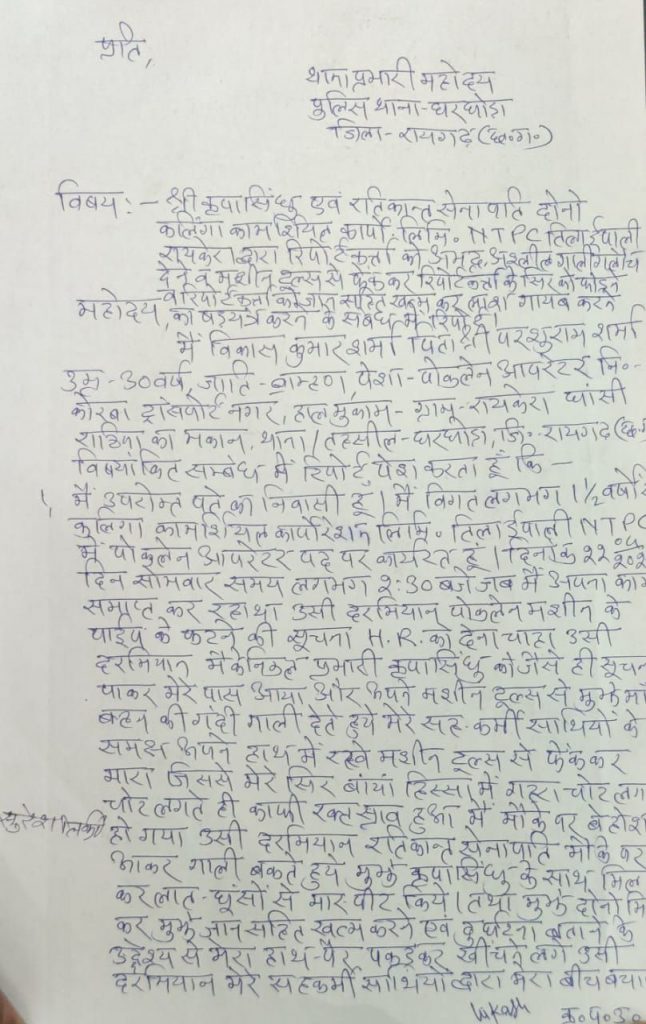 प्रति,
थाना प्रभारी महोदय
पुलिस थाना - घरघोडा
जिला - रायगढ़ (छ.ग.)
विषय :- श्री कृपासिंधु एवं रतिकान्त सेनापति दोनो
कलिंगा कामर्शियल कार्पो. लिमि. NTPC तिलाईपाली
रायकेरा द्वारा रिपोर्टकर्ता को अभद्र, अश्लील गाली गलौच
देने व मशीन टूल्स से फेंककर रिपोर्टकर्ता के सिर को फोड़ने
व रिपोर्टकर्ता को जान सहित खत्म कर लाश गायब करने
महोदय, का षडयंत्र करने के संबंध में रिपोर्ट।
मैं विकास कुमार शर्मा पिता श्री परशुराम शर्मा
उम्र - 30 वर्ष, जाति - ब्राम्हण, पेशा - पोकलेन आपरेटर नि. -
कोरबा ट्रांसपोर्ट नगर, हाल मुकाम - ग्राम - रायकेरा घांसी
राठिया का मकान, थाना / तहसील - घरघोडा, जि. रायगढ़ (छ.ग.
विषयांकित सम्बंध में रिपोर्ट पेश करता हूँ कि -
1, मैं उपरोक्त पते का निवासी हूँ। मैं विगत लगभग 1½ वर्षो से
कलिंगा कामर्शियल कार्पोरेशन लिमि. तिलाईपाली NTPC
में पोकलेन आपरेटर पद पर कार्यरत हूँ। दिनांक 22.
दिन सोमवार समय लगभग 2:30 बजे जब मैं अपना काम
समाप्त कर रहा था उसी दरमियान पोकलेन मशीन के
पाईप के फटने की सूचना H.R. को देना चाहा उसी
दरमियान मैकेनिकल प्रभारी कृपासिंधु को जैसे ही सूचन
पाकर मेरे पास आया और अपने मशीन टूल्स से मुझे माँ
बहन की गंदी गाली देते हुये मेरे सह-कर्मी साथियों के
समक्ष अपने हाथ में रखे मशीन टूल्स से फेंककर
मारा जिससे मेरे सिर बांया हिस्सा में गहरा चोट लग
चोट लगते ही काफी रक्त स्त्राव हुआ मैं मौके पर बेहोश
हो गया उसी दरमियान रतिकान्त सेनापति मौके पर
आकर गाली बकते हुये मुझे कृपासिंधु के साथ मिल
कर लात-घूंसों से मारपीट किये। तथा मुझे दोनो मि
कर मुझे जान सहित खत्म करने एवं दुर्घटना बताने के
उद्देश्य से मेरा हाथ-पैर पकड़कर खींचने लगे उसी
दरमियान मेरे सहकर्मी साथियों द्वारा मेरा बीच बचा
Vikash क.प.उ.